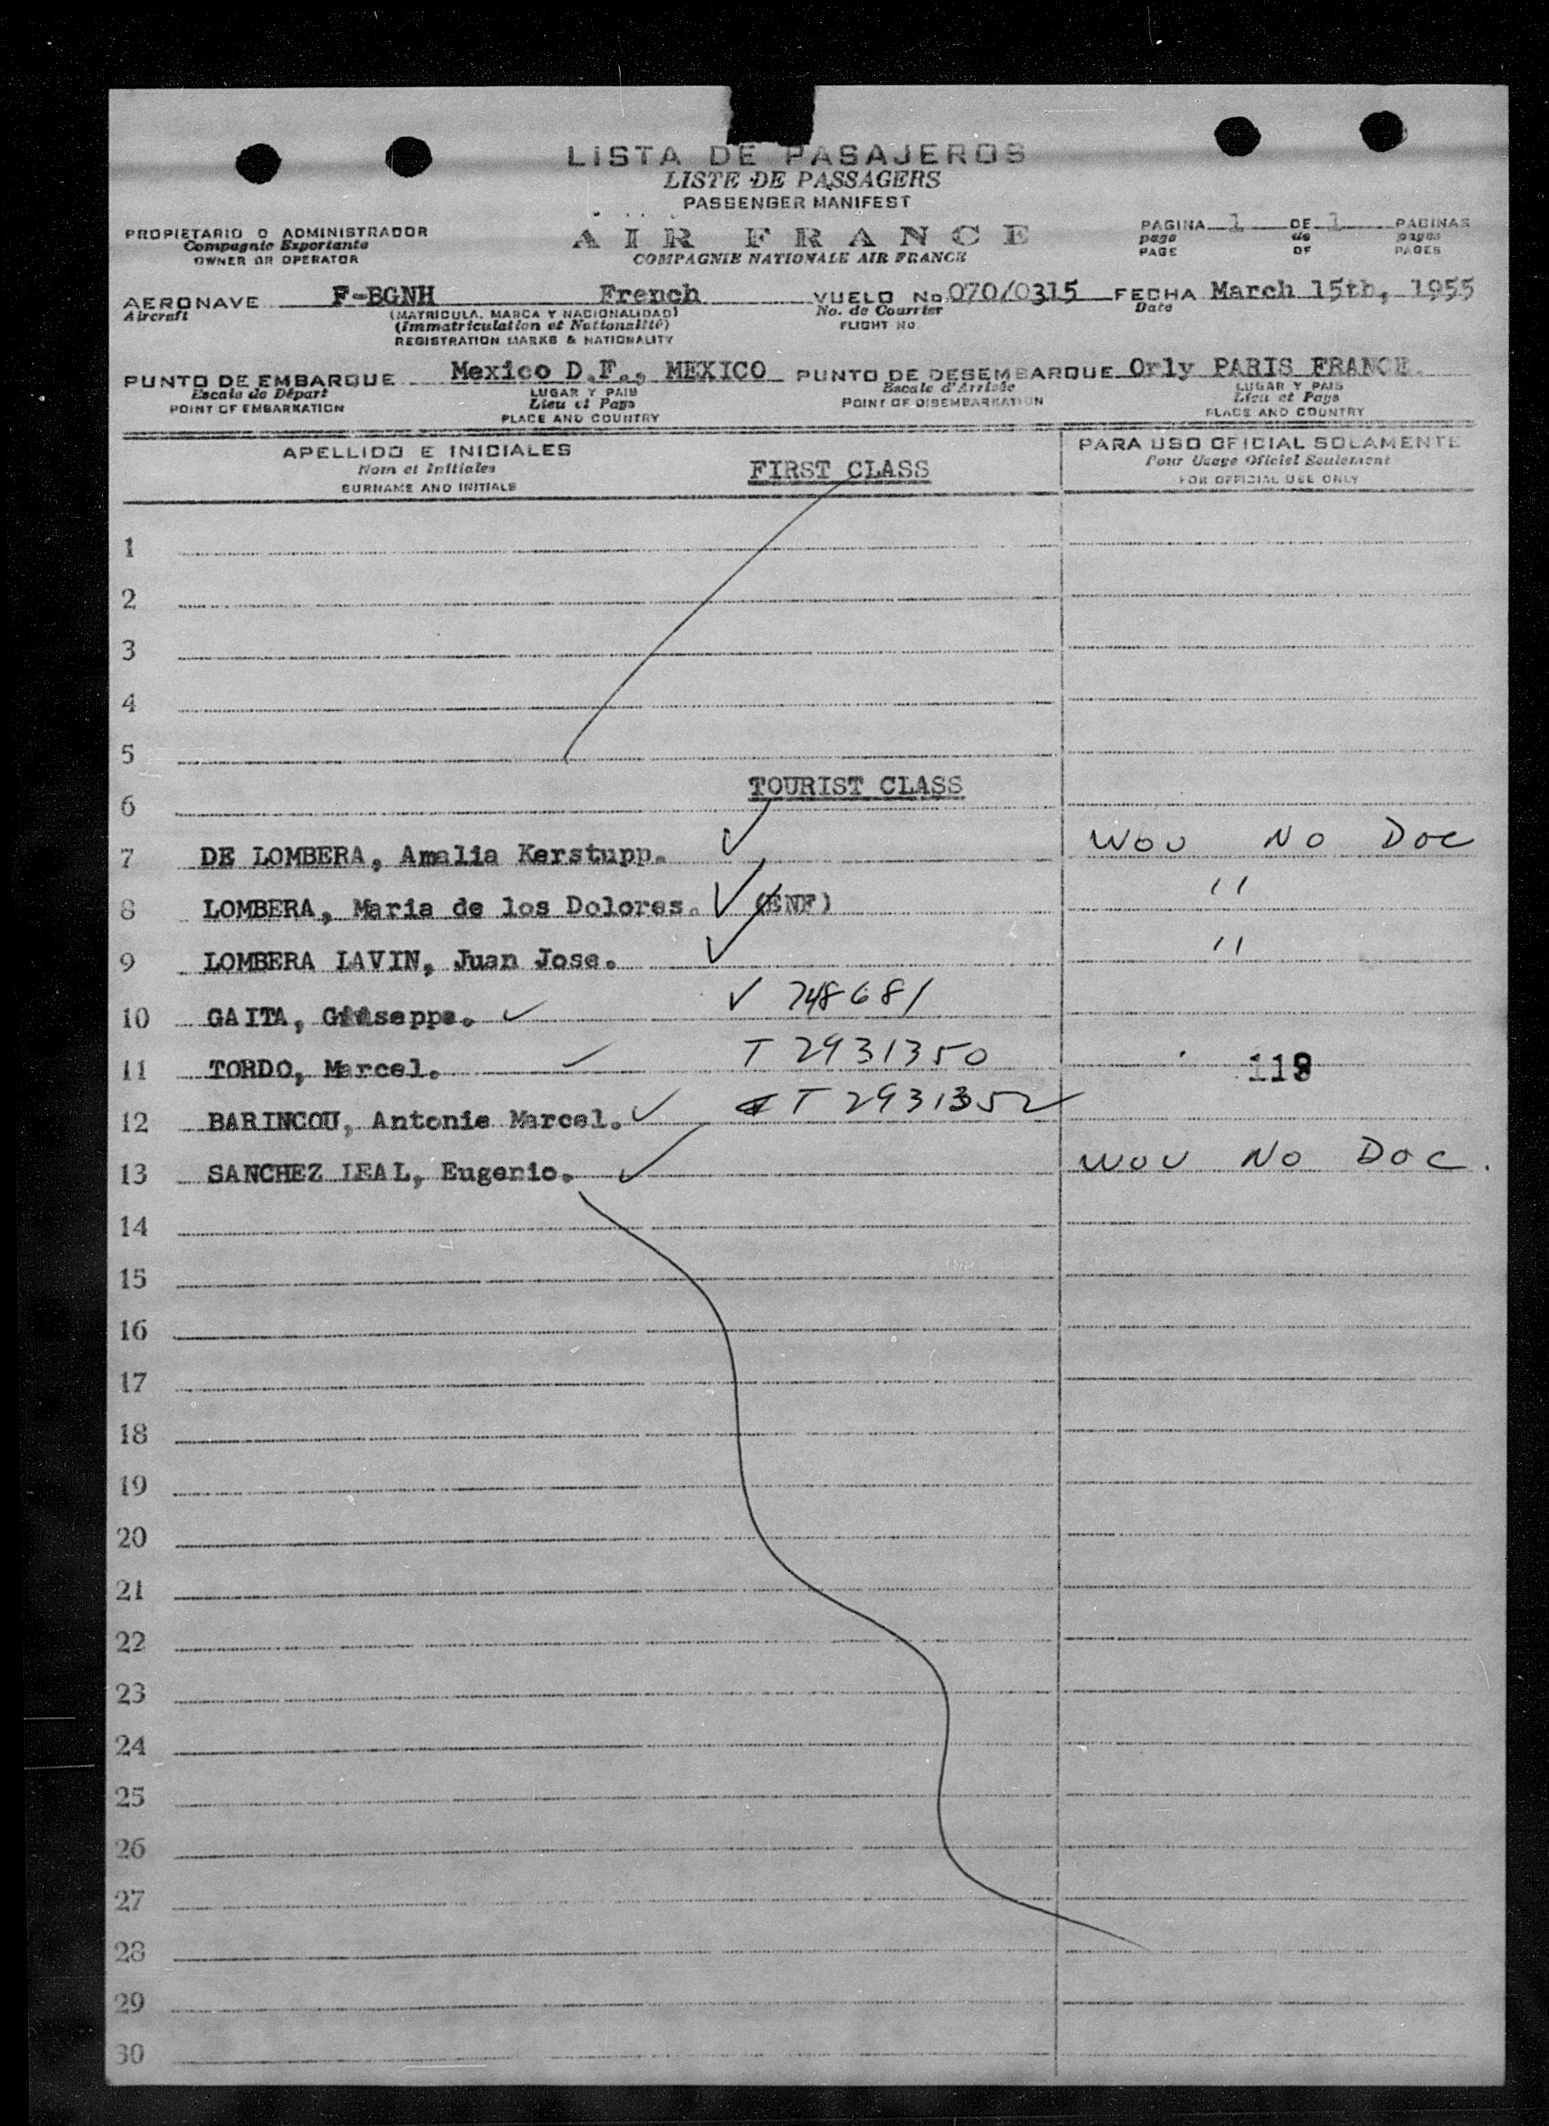 LISTA DE PASAJEROS
LISTE DE PASSAGERS
PASSENGER MANIFEST
PROPIETARIO O ADMINISTRADOR
Compagnie Exportante
OWNER OR OPERATOR
AIR FRANCE
COMPAGNIE NATIONALE AIR FRANCE
PAGINA 1 DE 1 PAGINAS
page de pages
PAGE OF PAGES
AERONAVE F-BGNH French VUELO No 070/0315 FECHA March 15th, 1955
Aircraft (MATRICULA, MARCA Y NACIONALIDAD) No. de Courrier Date
(Immatriculation et Nationalité) FLIGHT No.
REGISTRATION MARKS & NATIONALITY
PUNTO DE EMBARQUE Mexico D.F., MEXICO PUNTO DE DESEMBARQUE Orly PARIS FRANCE.
Escale de Départ LUGAR Y PAIS Escale d'Arrivée LUGAR Y PAIS
POINT OF EMBARKATION Lieu et Pays POINT OF DISEMBARKATION Lieu et Pays
PLACE AND COUNTRY PLACE AND COUNTRY
APELLIDO E INICIALES
Nom et Initiales
SURNAME AND INITIALS
FIRST CLASS
PARA USO OFICIAL SOLAMENTE
Pour Usage Oficiel Seulement
FOR OFFICIAL USE ONLY
1
2
3
4
5
TOURIST CLASS
6
7 DE LOMBERA, Amalia Kerstupp. ✓ WOU NO DOC
8 LOMBERA, Maria de los Dolores. ✓ (ENF) "
9 LOMBERA LAVIN, Juan Jose. ✓ "
10 GAITA, Giuseppe. ✓ ✓ 748681
11 TORDO, Marcel. ✓ T 2931350 119
12 BARINCOU, Antonie Marcel. ✓ T 2931352
13 SANCHEZ LEAL, Eugenio. ✓ WOU NO DOC.
14
15
16
17
18
19
20
21
22
23
24
25
26
27
28
29
30